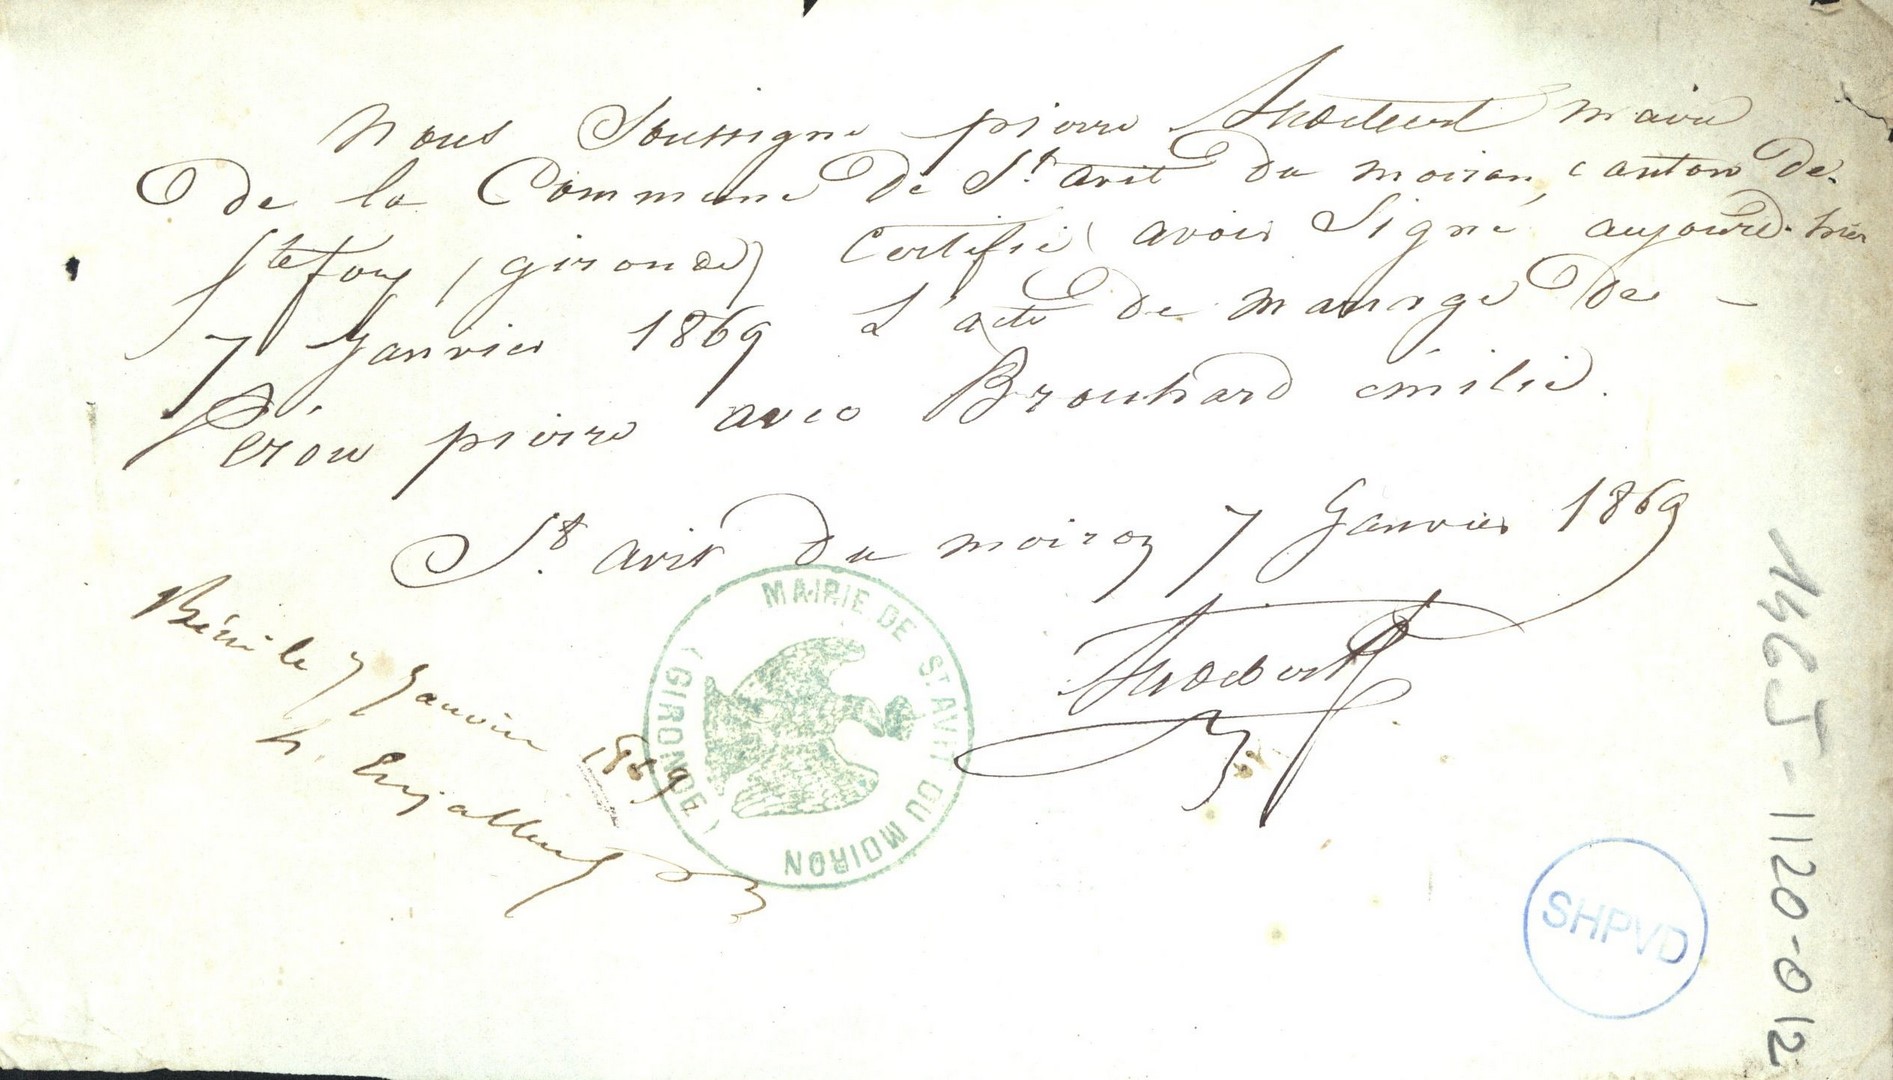 Nous Soussigné pierre maire
de la Commune de St. avit du moiron, canton de
Ste foy (gironde) Certifie avoir Signé aujourd'huy
7 Janvier 1869 L'acte de mariage de -
Pérou pierre avec Brouhard émilie.
St. avit du moiron 7 Janvier 1869
Béni le 7 Janvier 1869
MAIRIE DE ST AVIT DU MOIRON
(GIRONDE)
SHPVD
1465-1120-012